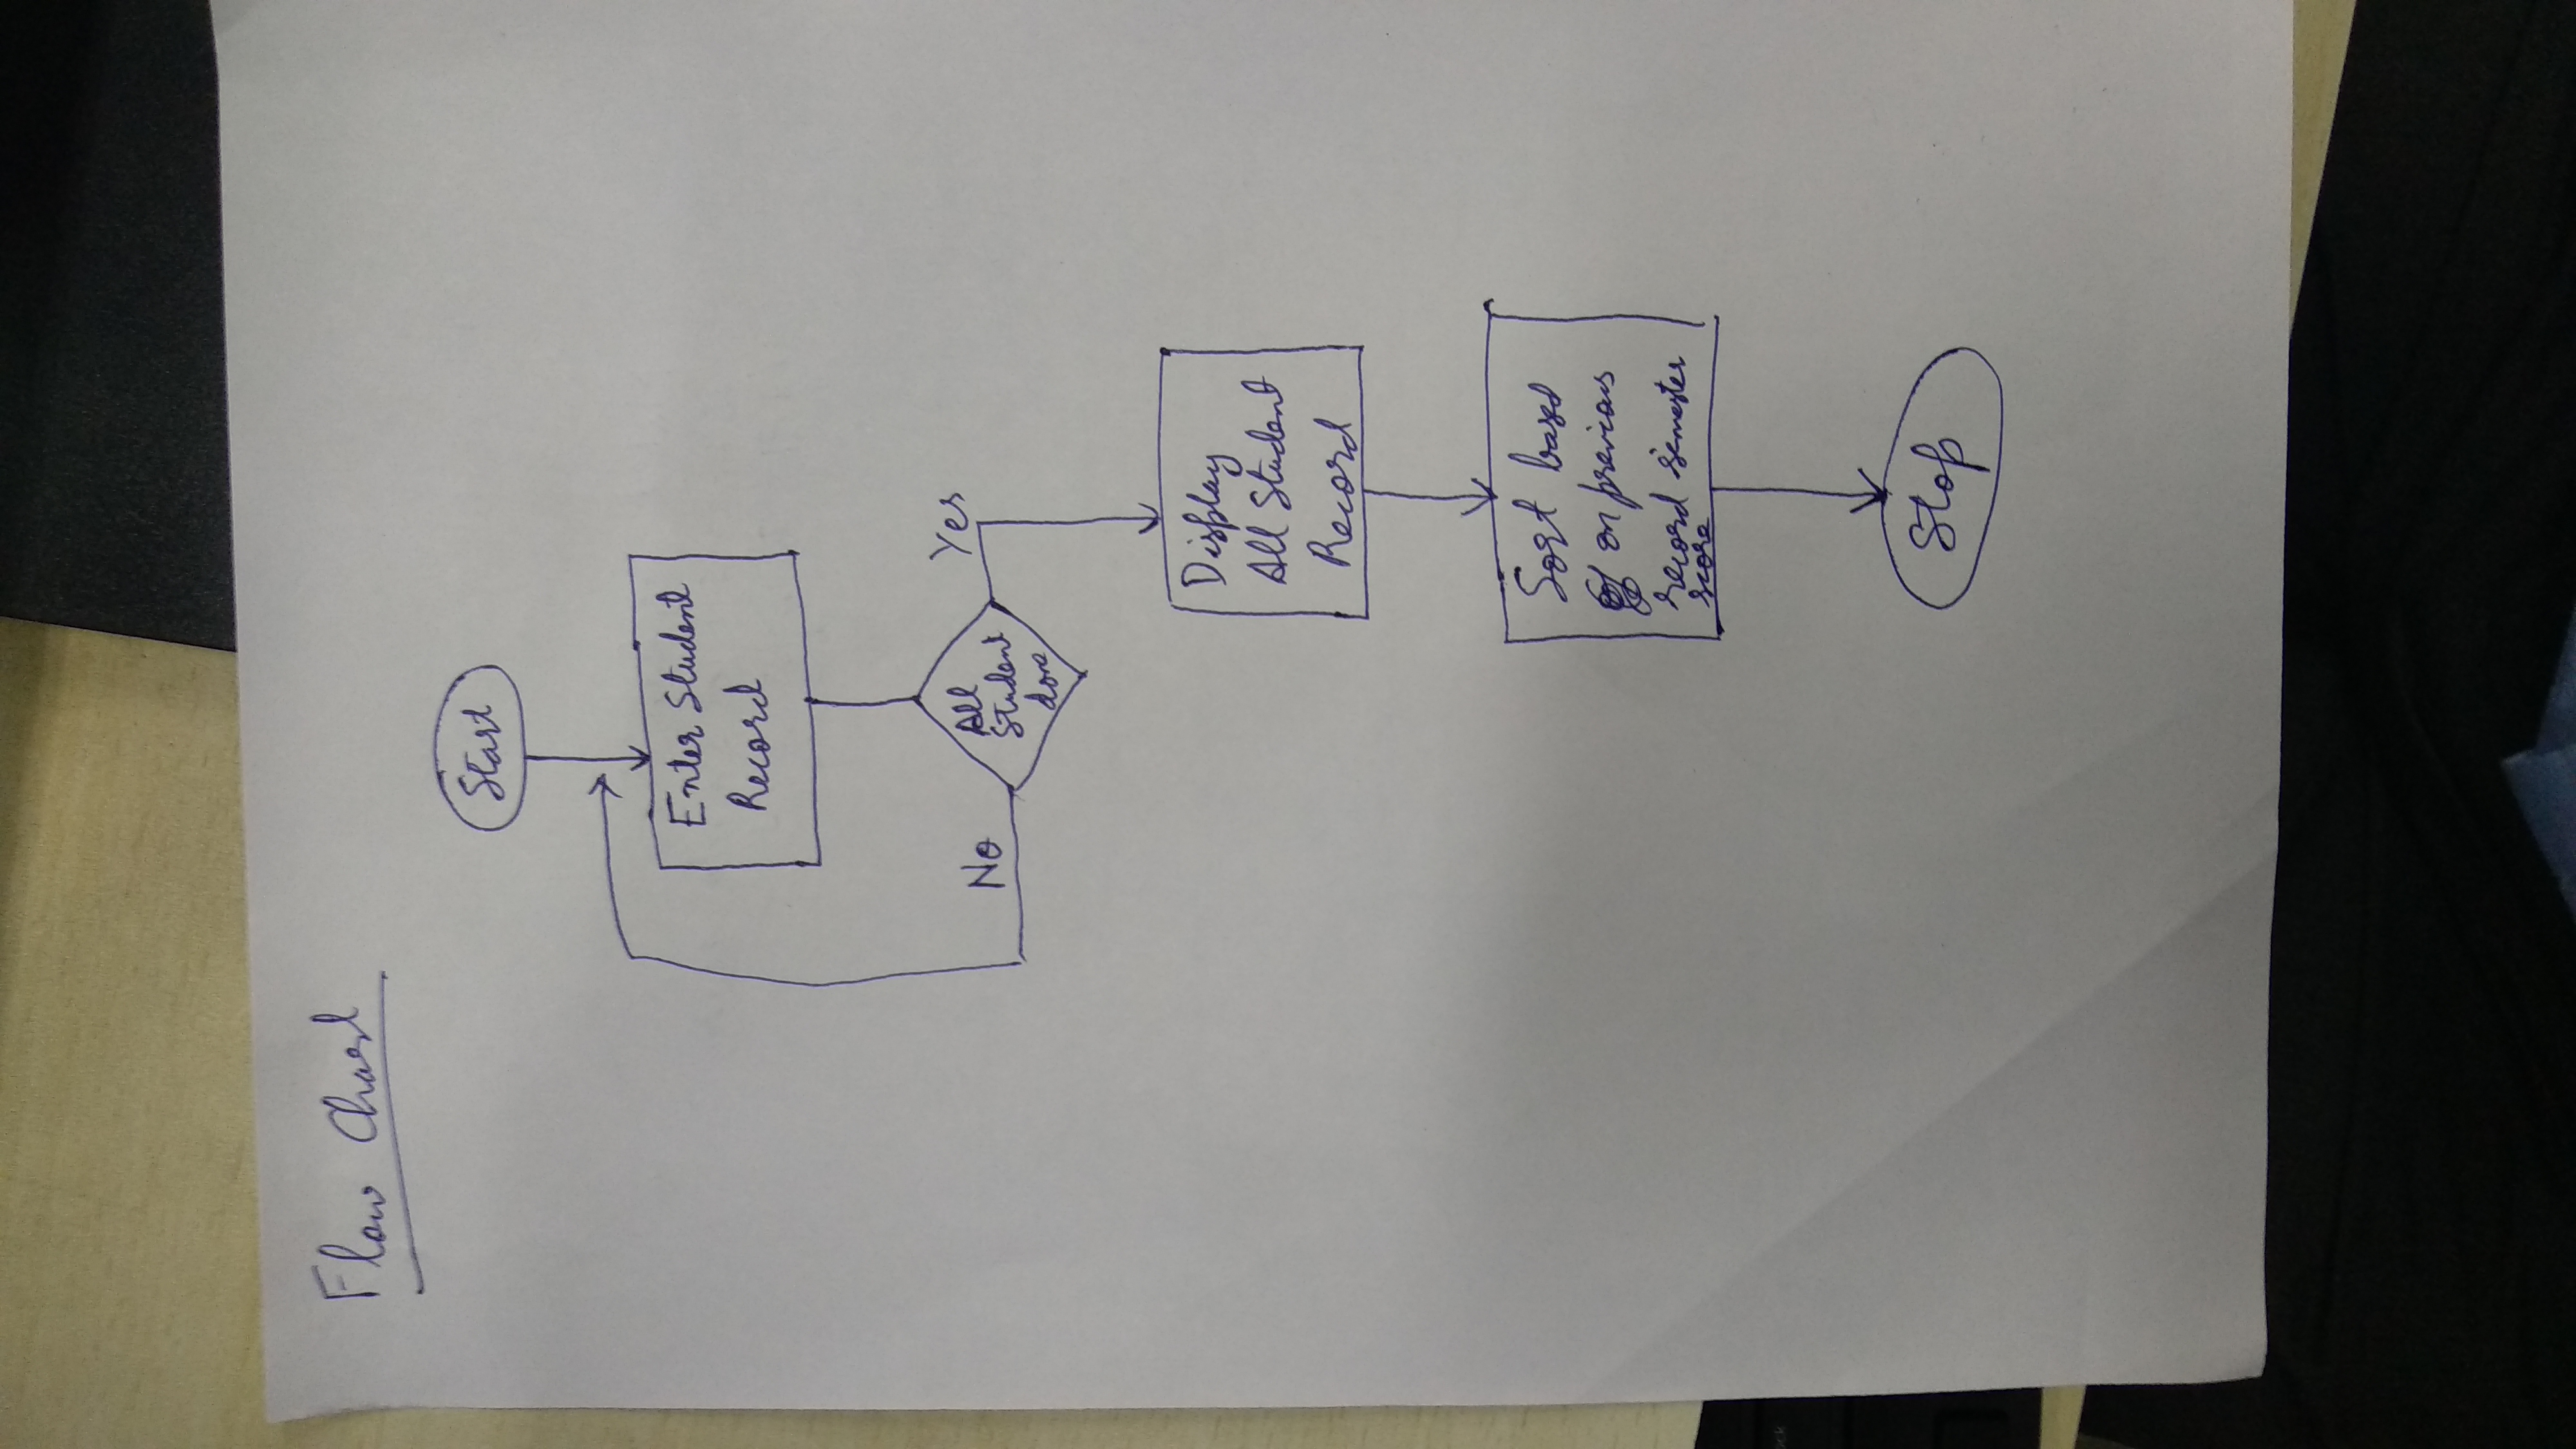 Flow Chart
Start
Enter Student
Record
No
Yes
All
Student
done
Display
All Student
Record
Sort based
on previous
record semester
score
Stop